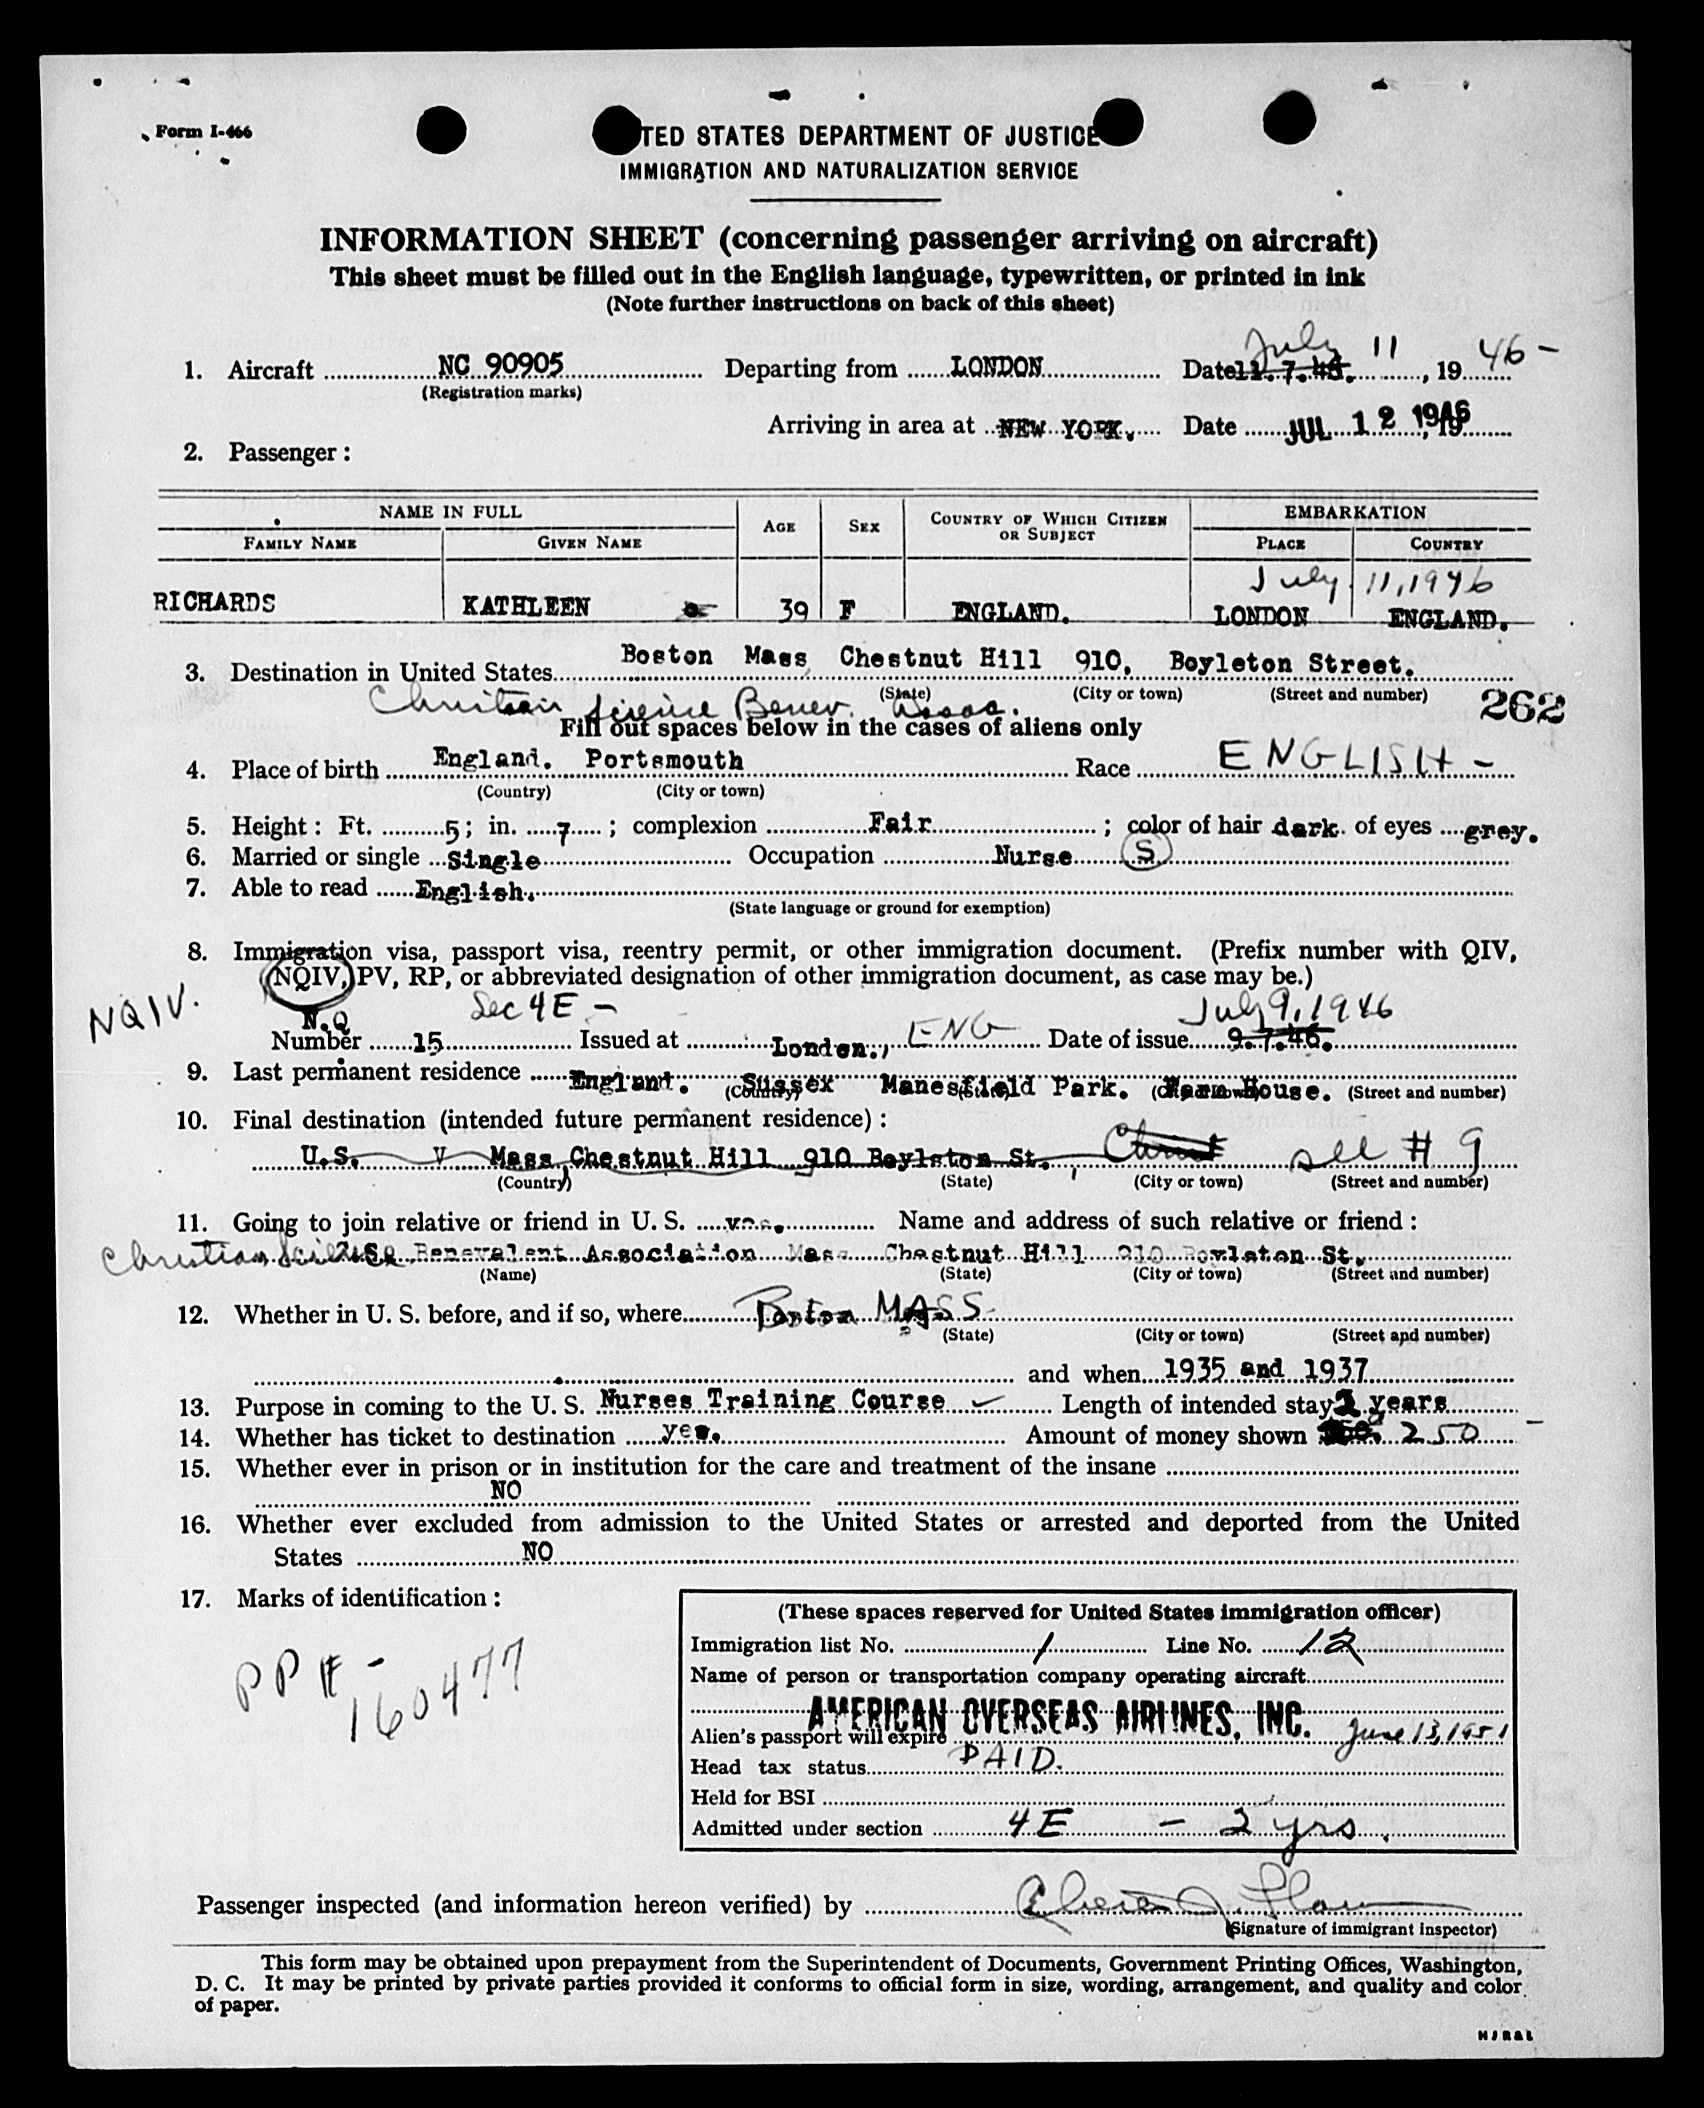 Form I-466
TED STATES DEPARTMENT OF JUSTICE
IMMIGRATION AND NATURALIZATION SERVICE
INFORMATION SHEET (concerning passenger arriving on aircraft)
This sheet must be filled out in the English language, typewritten, or printed in ink
(Note further instructions on back of this sheet)
July 11 46 -
1. Aircraft NC 90905 Departing from LONDON Date 11.7.46. , 19
(Registration marks)
Arriving in area at NEW YORK. Date JUL 12 1946 , 19
2. Passenger :
NAME IN FULL AGE SEX COUNTRY OF WHICH CITIZEN OR SUBJECT EMBARKATION
FAMILY NAME GIVEN NAME PLACE COUNTRY
July 11, 1946
RICHARDS KATHLEEN 39 F ENGLAND. LONDON ENGLAND.
3. Destination in United States Boston Mass Chestnut Hill 910, Boyleton Street.
(State) (City or town) (Street and number)
Christian Science Benev. Assoc. 262
Fill out spaces below in the cases of aliens only
4. Place of birth England. Portsmouth Race ENGLISH -
(Country) (City or town)
5. Height : Ft. 5 ; in. 7 ; complexion Fair ; color of hair dark. of eyes grey.
6. Married or single Single Occupation Nurse S
7. Able to read English.
(State language or ground for exemption)
8. Immigration visa, passport visa, reentry permit, or other immigration document. (Prefix number with QIV,
NQIV, PV, RP, or abbreviated designation of other immigration document, as case may be.)
NQIV. Sec 4E - July 9, 1946
N.Q
Number 15 Issued at London., ENG Date of issue 9.7.46.
9. Last permanent residence England. Sussex Manesfield Park. Farm House.
(Country) (State) (City or town) (Street and number)
10. Final destination (intended future permanent residence) :
U.S. V Mass Chestnut Hill 910 Boylston St., Christ see # 9
(Country) (State) (City or town) (Street and number)
11. Going to join relative or friend in U. S. yes. Name and address of such relative or friend :
Christian Science Benevalent Association Mass Chestnut Hill 910 Boylston St.
(Name) (State) (City or town) (Street and number)
12. Whether in U. S. before, and if so, where Boston MASS
(State) (City or town) (Street and number)
and when 1935 and 1937
13. Purpose in coming to the U. S. Nurses Training Course Length of intended stay 2 years
14. Whether has ticket to destination yes. Amount of money shown 250 -
15. Whether ever in prison or in institution for the care and treatment of the insane
NO
16. Whether ever excluded from admission to the United States or arrested and deported from the United
States NO
17. Marks of identification :
PP # - 160477
(These spaces reserved for United States immigration officer)
Immigration list No. 1 Line No. 12
Name of person or transportation company operating aircraft
AMERICAN OVERSEAS AIRLINES, INC.
Alien's passport will expire June 13, 1951
Head tax status PAID.
Held for BSI
Admitted under section 4E - 2 yrs.
Passenger inspected (and information hereon verified) by
(Signature of immigrant inspector)
This form may be obtained upon prepayment from the Superintendent of Documents, Government Printing Offices, Washington,
D. C. It may be printed by private parties provided it conforms to official form in size, wording, arrangement, and quality and color
of paper.